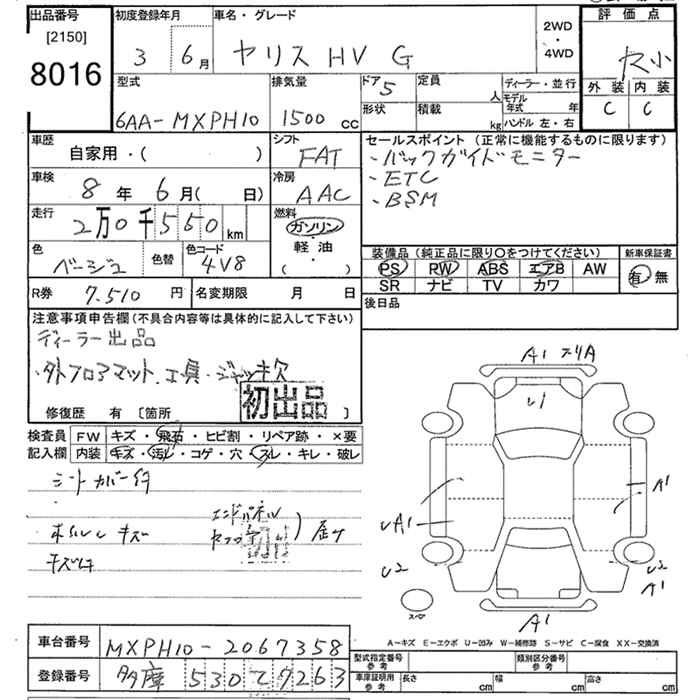 出品番号
[2150]
8016
初度登録年月
3 6月
車名・グレード
ヤリス HV G
2WD
・
4WD
評価点
外装 内装
C C
型式
6AA-MXPH10
排気量
1500 cc
ドア 5
定員 人
形状
積載 kg
ディーラー・並行
モデル年式 年
ハンドル 左・右
車歴
自家用・( )
シフト
FAT
車検
8年 6月( 日)
冷房
AAC
走行
2万0千550km
燃料
ガソリン
軽・油
・( )
色
ベージュ
色替
色コード
4V8
R券 7,510円
名変期限 月 日
セールスポイント(正常に機能するものに限ります)
・バックガイドモニター
・ETC
・BSM
装備品(純正品に限り○をつけてください)
PS RW ABS エアB AW
SR ナビ TV カワ
新車保証書
有・無
後日品
注意事項申告欄(不具合内容等は具体的に記入して下さい)
ディーラー出品
・外フロアマット、工具・ジャッキ欠
初出品
修復歴 有〔箇所 〕
検査員 FW キズ・飛石・ヒビ割・リペア跡・×要
記入欄 内装 キズ・汚レ・コゲ・穴・スレ・キレ・破レ
シートカバー付
エンドパネル
A1
U1
A1
UA1
U2
U2
A1
スペア
A1
A-キズ E-エクボ U-凹み W-補修跡 S-サビ C-腐食 XX-交換済
車台番号 MXPH10-2067358
登録番号 多摩 530 て 7263
型式指定番号参考
類別区分番号参考
車庫証明用参考 長さ cm 幅 cm 高さ cm